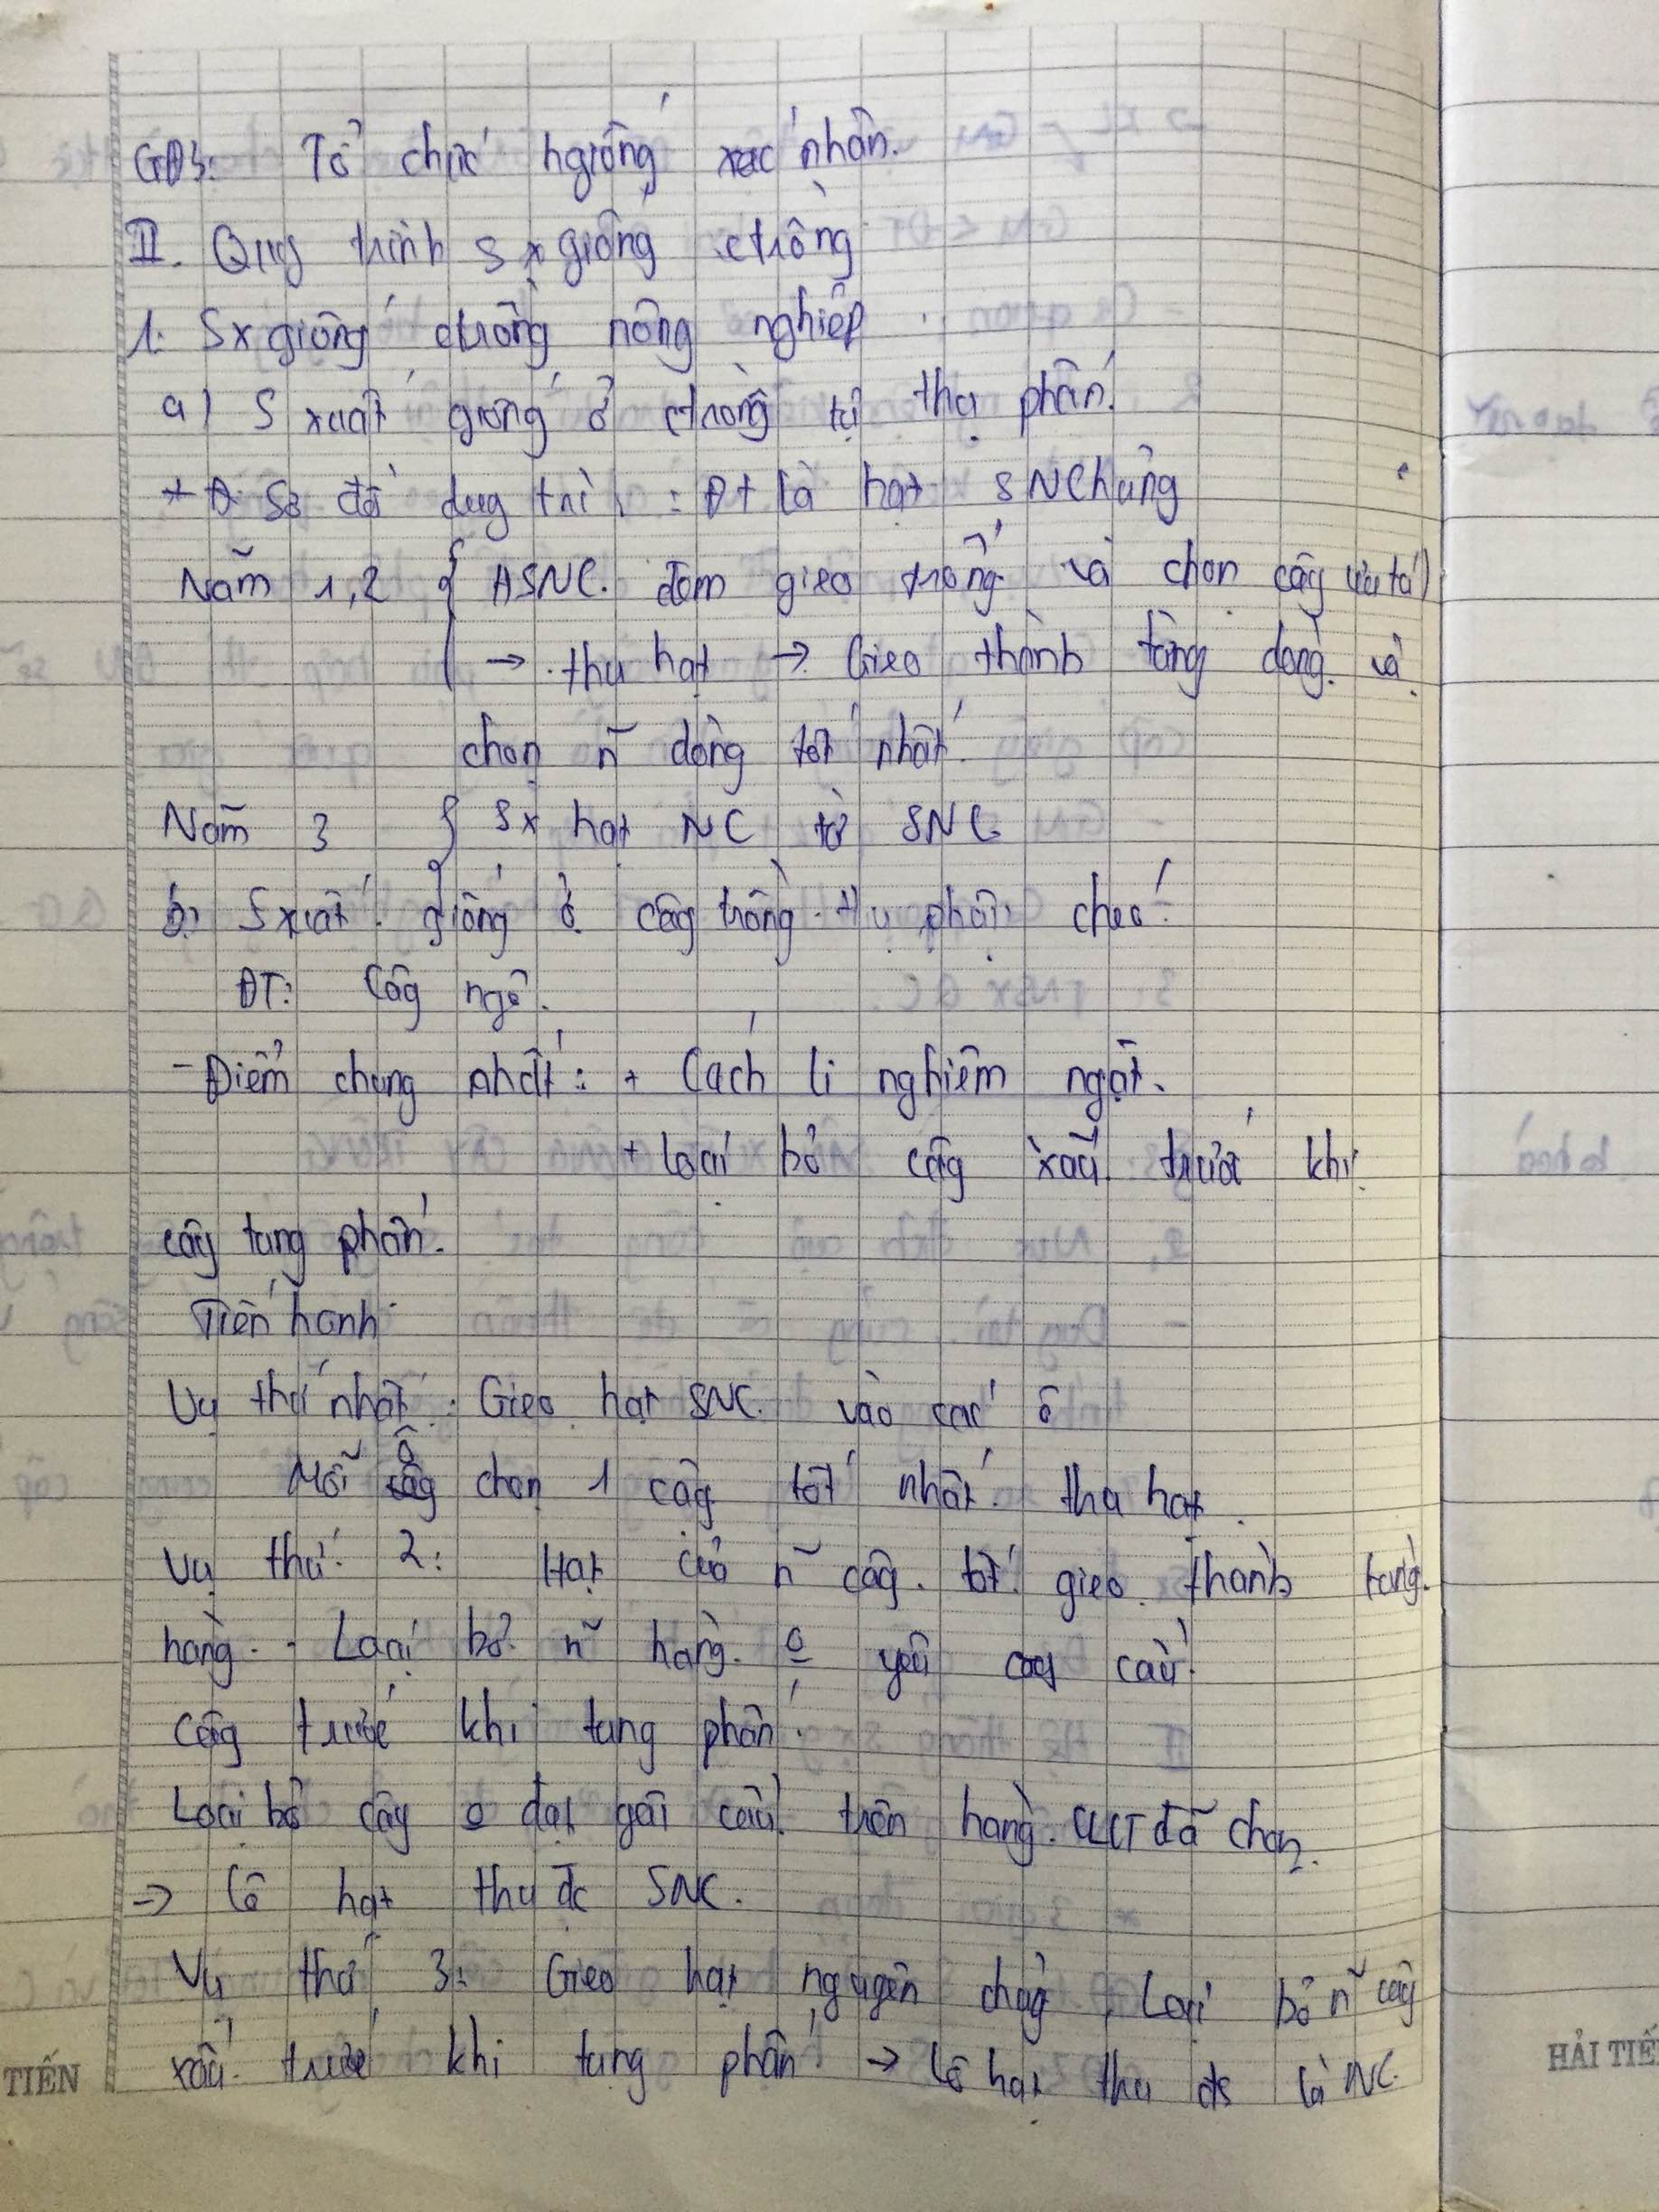 GĐ3: Tổ chức hgiống xác nhận.
II. Quy trình sx giống ctrồng
1. Sx giống ctrồng nông nghiệp
a) S xuất giống ở ctrồng tự thụ phấn.
Sơ đồ duy trì: ĐT là hạt SNChủng
Năm 1,2 { HSNC. đem gieo trồng và chọn cây ưu tú
→ thu hạt → Gieo thành từng dòng và
chọn n~ dòng tốt nhất.
Năm 3 { Sx hạt NC từ SNC
b) Sxuất giống ở cây trồng thụ phấn chéo.
ĐT: Cây ngô.
- Điểm chung nhất: + Cách li nghiêm ngặt.
+ Loại bỏ cây xấu trước khi
cây tung phấn.
Tiến hành
Vụ thứ nhất: Gieo hạt SNC vào các ô
Mỗi ô chọn 1 cây tốt nhất. thu hạt.
Vụ thứ 2: Hạt của n~ cây tốt gieo thành từng
hàng. Loại bỏ n~ hàng o yêu cầu
cây trước khi tung phấn.
Loại bỏ cây o đạt yêu cầu trên hàng đã chọn.
→ Lô hạt thu đc SNC.
Vụ thứ 3: Gieo hạt nguyên chủng, Loại bỏ n~ cây
xấu trước khi tung phấn → lô hạt thu đc là NC.
TIẾN
HẢI TIẾ